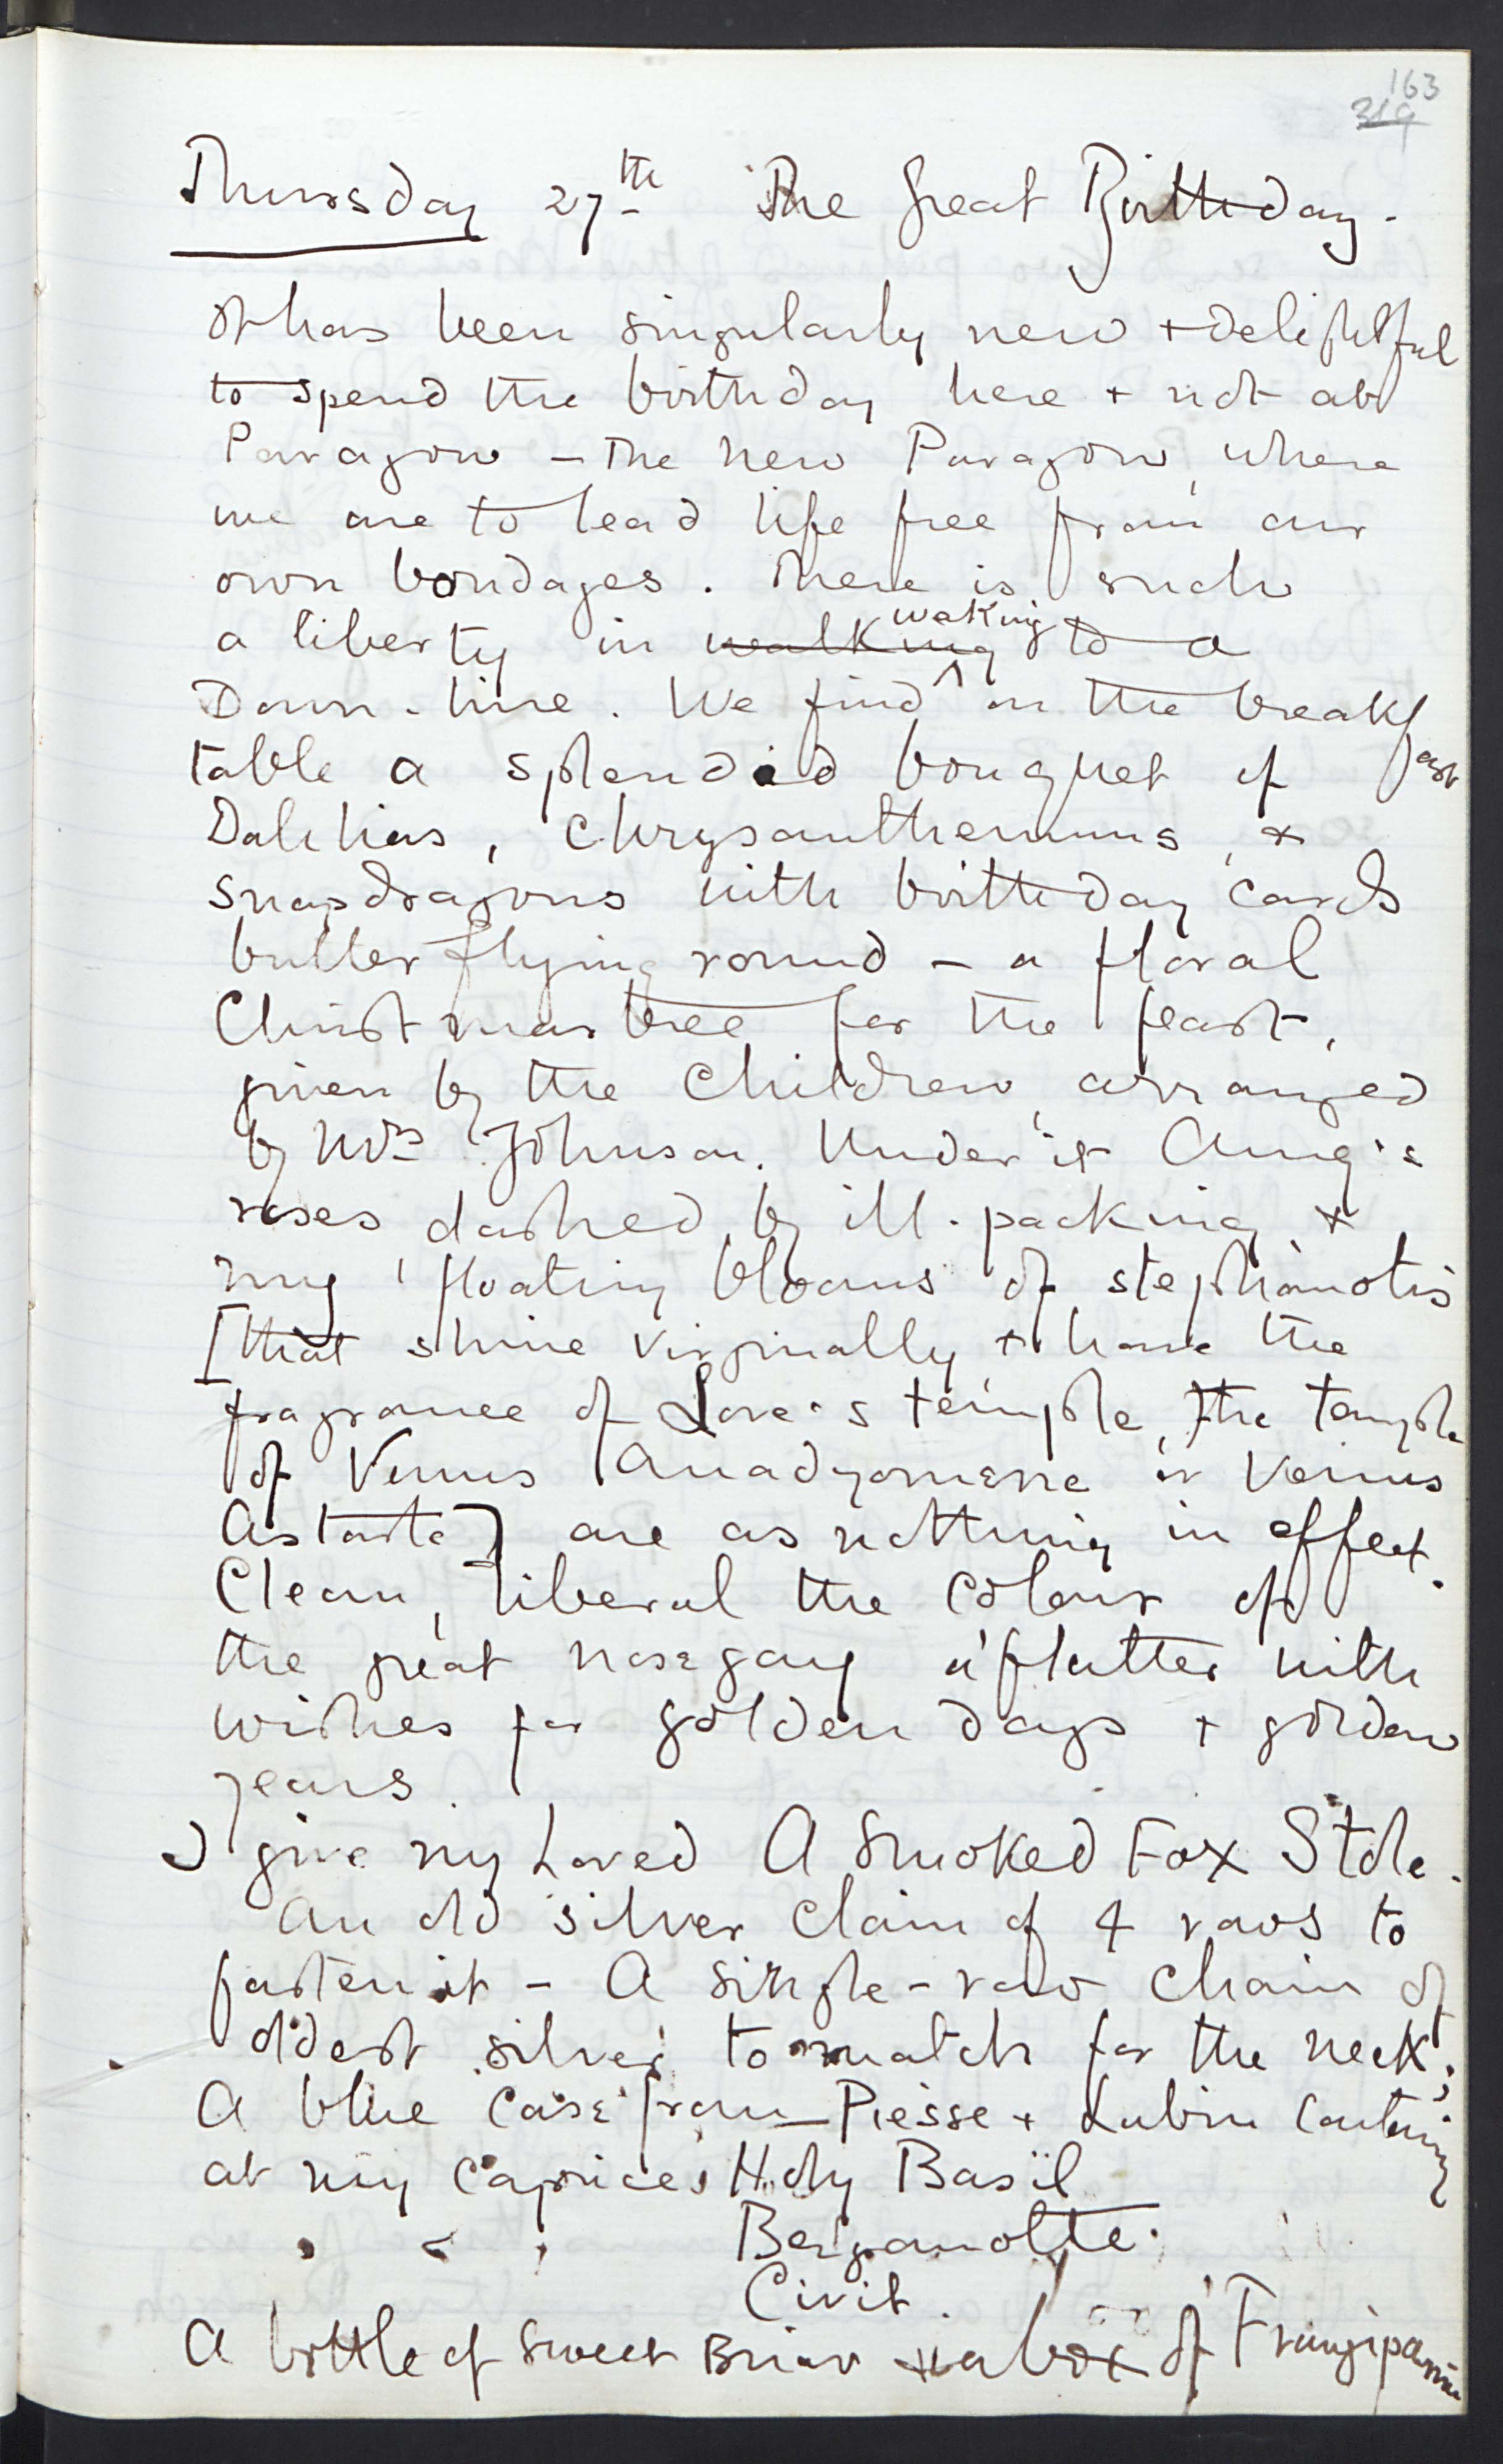 163
319
Thursday 27th The Great Birthday.
It has been singularly new + delightful
to spend the birthday here + not at
Paragon – The new Paragon, where
we are to lead life free from our
own bondages. There is such
a liberty in walking waking to a
Down-line. We find on the breakfast
table a splendid bouquet of
Dalhias, Chrysanthemums, +
snapdragons with birthday cards
butterflying round – a floral
Christmas tree for the feast,
given by the Children, arranged
by Mrs Johnson. Under it Amy's
roses dashed by ill-packing, +
my floating blooms of stephanotis
[that shine virginally + have the
fragrance of Love's temple, the temple
of Venus Anadyomene or Venus
Astarte] are as nothing in effect.
Clean, liberal the colour of
the great nosegay a'flutter with
wishes for golden days + golden
years.
I give my Loved A Smoked Fox Stole.
An old silver Chain of 4 rows to
fasten it – A single-row chain of
oldest silver to match for the neck;
A blue Case from Piesse + Lubin containing
at my caprice, Holy Basil
" " " Bergamotte.
Civit.
A bottle of Sweet Briar + a box of Frangipanni